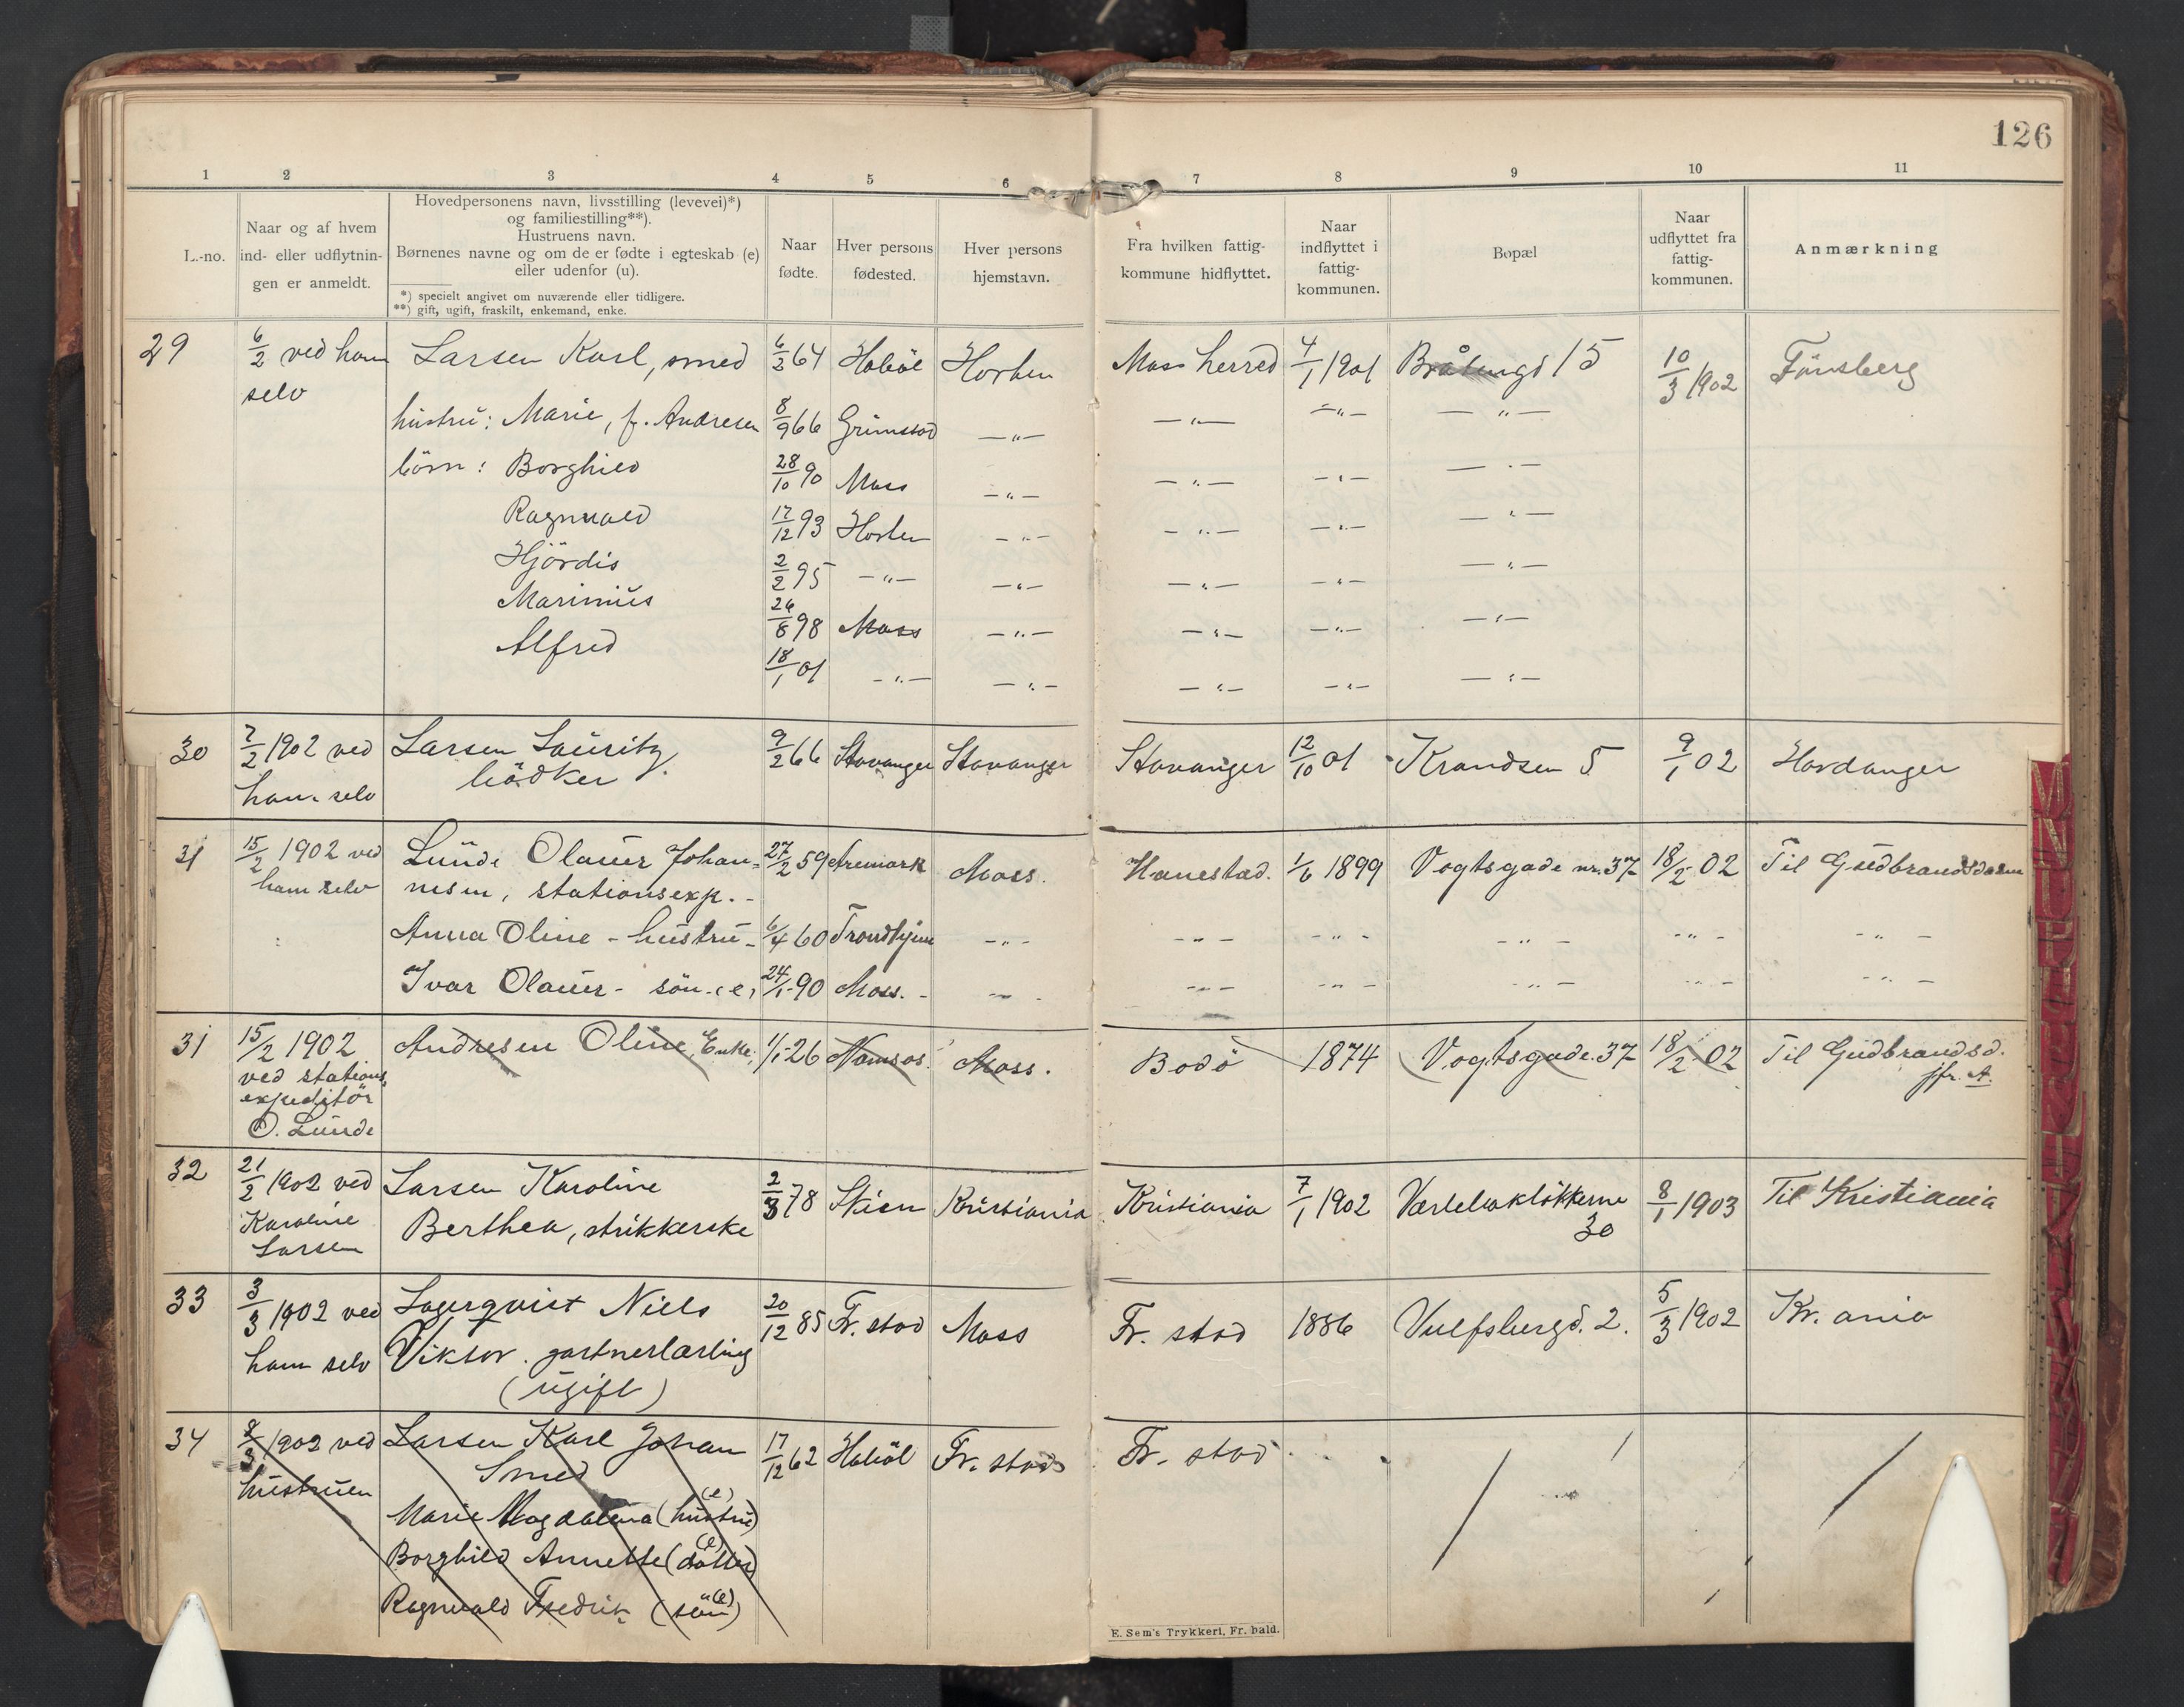 126
1 2 3 4 5 6 7 8 9 10 11
L.-no.
Naar og af hvem
ind- eller udflytnin-
gen er anmeldt.
Hovedpersonens navn, livsstilling (levevei)*)
og familiestilling**).
Hustruens navn.
Børnenes navne og om de er fødte i egteskab (e)
eller udenfor (u).
*) specielt angivet om nuværende eller tidligere.
**) gift, ugift, fraskilt, enkemand, enke.
Naar
fødte.
Hver persons
fødested.
Hver persons
hjemstavn.
Fra hvilken fattig-
kommune hidflyttet.
Naar
indflyttet i
fattig-
kommunen.
Bopæl
Naar
udflyttet fra
fattig-
kommunen.
Anmærkning
29 6/2 ved ham Larsen Karl, smed 6/2 64 Haböl Horten Moss herred 4/1 1901 15 10/3 1902 Tönsberg
selv
hustru: Marie, f. Andresen 8/9 66 Grimstad —"— —"— —"— —"—
börn: Borghild 28/10 90 Moss —"— —"— —"— —"—
Ragnvald 17/12 93 Horten —"— —"— —"— —"—
Hjördis 2/2 95 —"— —"— —"— —"— —"—
Marinius 26/8 98 Moss —"— —"— —"— —"—
Alfred 18/1 01 —"— —"— —"— —"— —"—
30 7/2 1902 ved Larsen Lauritz, 9/2 66 Stavanger Stavanger Stavanger 12/10 01 Krandsen 5 9/1 02 Hardanger
ham selv bödker
31 15/2 1902 ved Lunde Olauer Johan- 27/2 59 Aremark Moss. Hanestad. 1/6 1899 Vogtsgade nr. 37 18/2 02 Til Gudbrandsdalen
ham selv nesen, stationsexp. -
Anna Oline - hustru - 6/4 60 Trondhjem -"- -"- -"- -"- -"- -"-
Ivar Olauer - sön - (e) 24/1 90 Moss. - -"- -"- -"- -"- -"- -"-
31 15/2 1902 Andresen Oline, Enke, 1/1 26 Namsos. Moss. Bodö 1874 Vogtsgade. 37 18/2 02 Til Gudbrandsd.
ved stations- jfr. A.
expeditör
O. Lunde
32 21/2 1902 ved Larsen Karoline 2/3 78 Skien Kristiania Kristiania 7/1 1902 8/1 1903 Til Kristiania
Karoline Berthea, strikkerske 30
Larsen
33 3/3 1902 ved Lagerqvist Niels 20/12 85 Fr. stad Moss Fr. stad 1886 Vulfsbergd. 2. 5/3 1902 Kr. ania
ham selv Viktor. gartnerlærling
(ugift)
34 8/3 1902 ved Larsen Karl Johan 17/12 62 Haböl Fr. stad Fr. stad
hustruen Smed
Marie Magdalena (hustru) (e)
Borghild Annette (datter) (e)
Ragnvald Fredrik (sön) (e)
E. Sem's Trykkeri, Fr.hald.